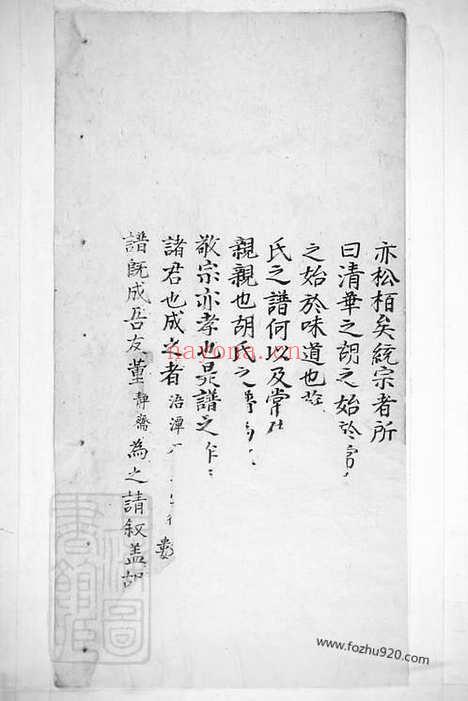 亦松栢矣統宗者所
曰清華之胡之始於
之始於味道也
氏之譜何以及常
親親也胡氏之
敬宗亦孝也是譜之作
諸君也成之者 浯潭
譜旣成吾友董靜齋為之請叙盖胡
navona.cn
www.fozhu920.com